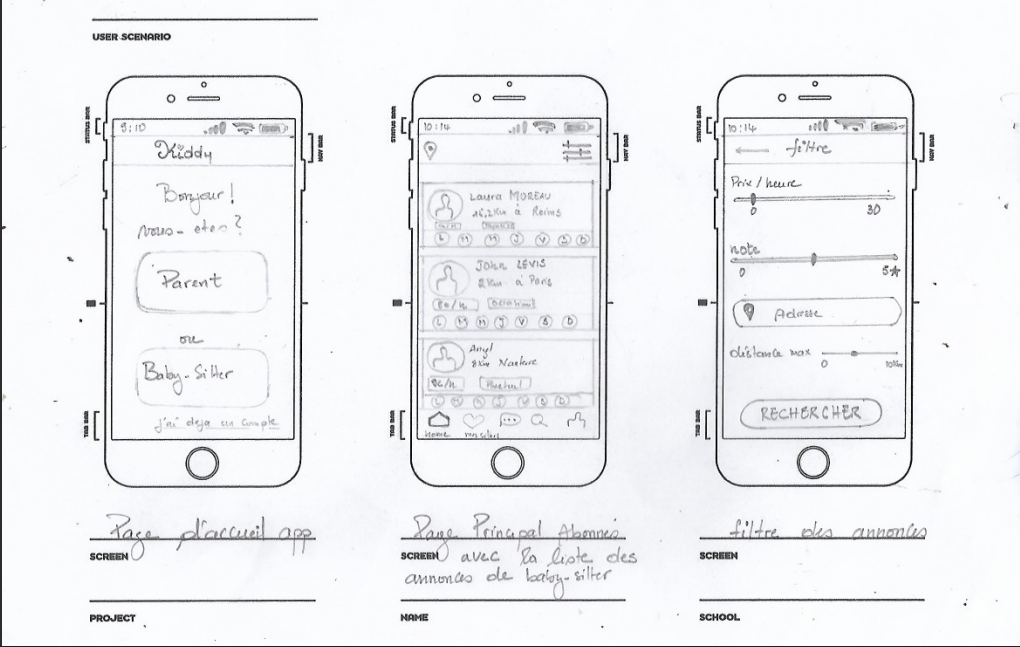 USER SCENARIO
STATUS BAR
NAV BAR
TAB BAR
9:10
Kiddy
Bonjour!
vous-etes?
Parent
ou
Baby-Sitter
j'ai deja un compte
Page d'accueil app
SCREEN
PROJECT
STATUS BAR
NAV BAR
TAB BAR
10:14
Laura MOREAU
16,2Km à Reims
L M M J V S D
John LEVIS
2Km à Paris
8€/h
L M M J V S D
8Km Nanterre
9€/h
L M M J V S D
home
Page Principal Abonnés
SCREEN
avec la liste des
annonces de baby-sitter
NAME
STATUS BAR
NAV BAR
TAB BAR
10:14
filtre
Prix/heure
0 30
note
0 5★
Adresse
distance max
0 10Km
RECHERCHER
filtre des annonces
SCREEN
SCHOOL